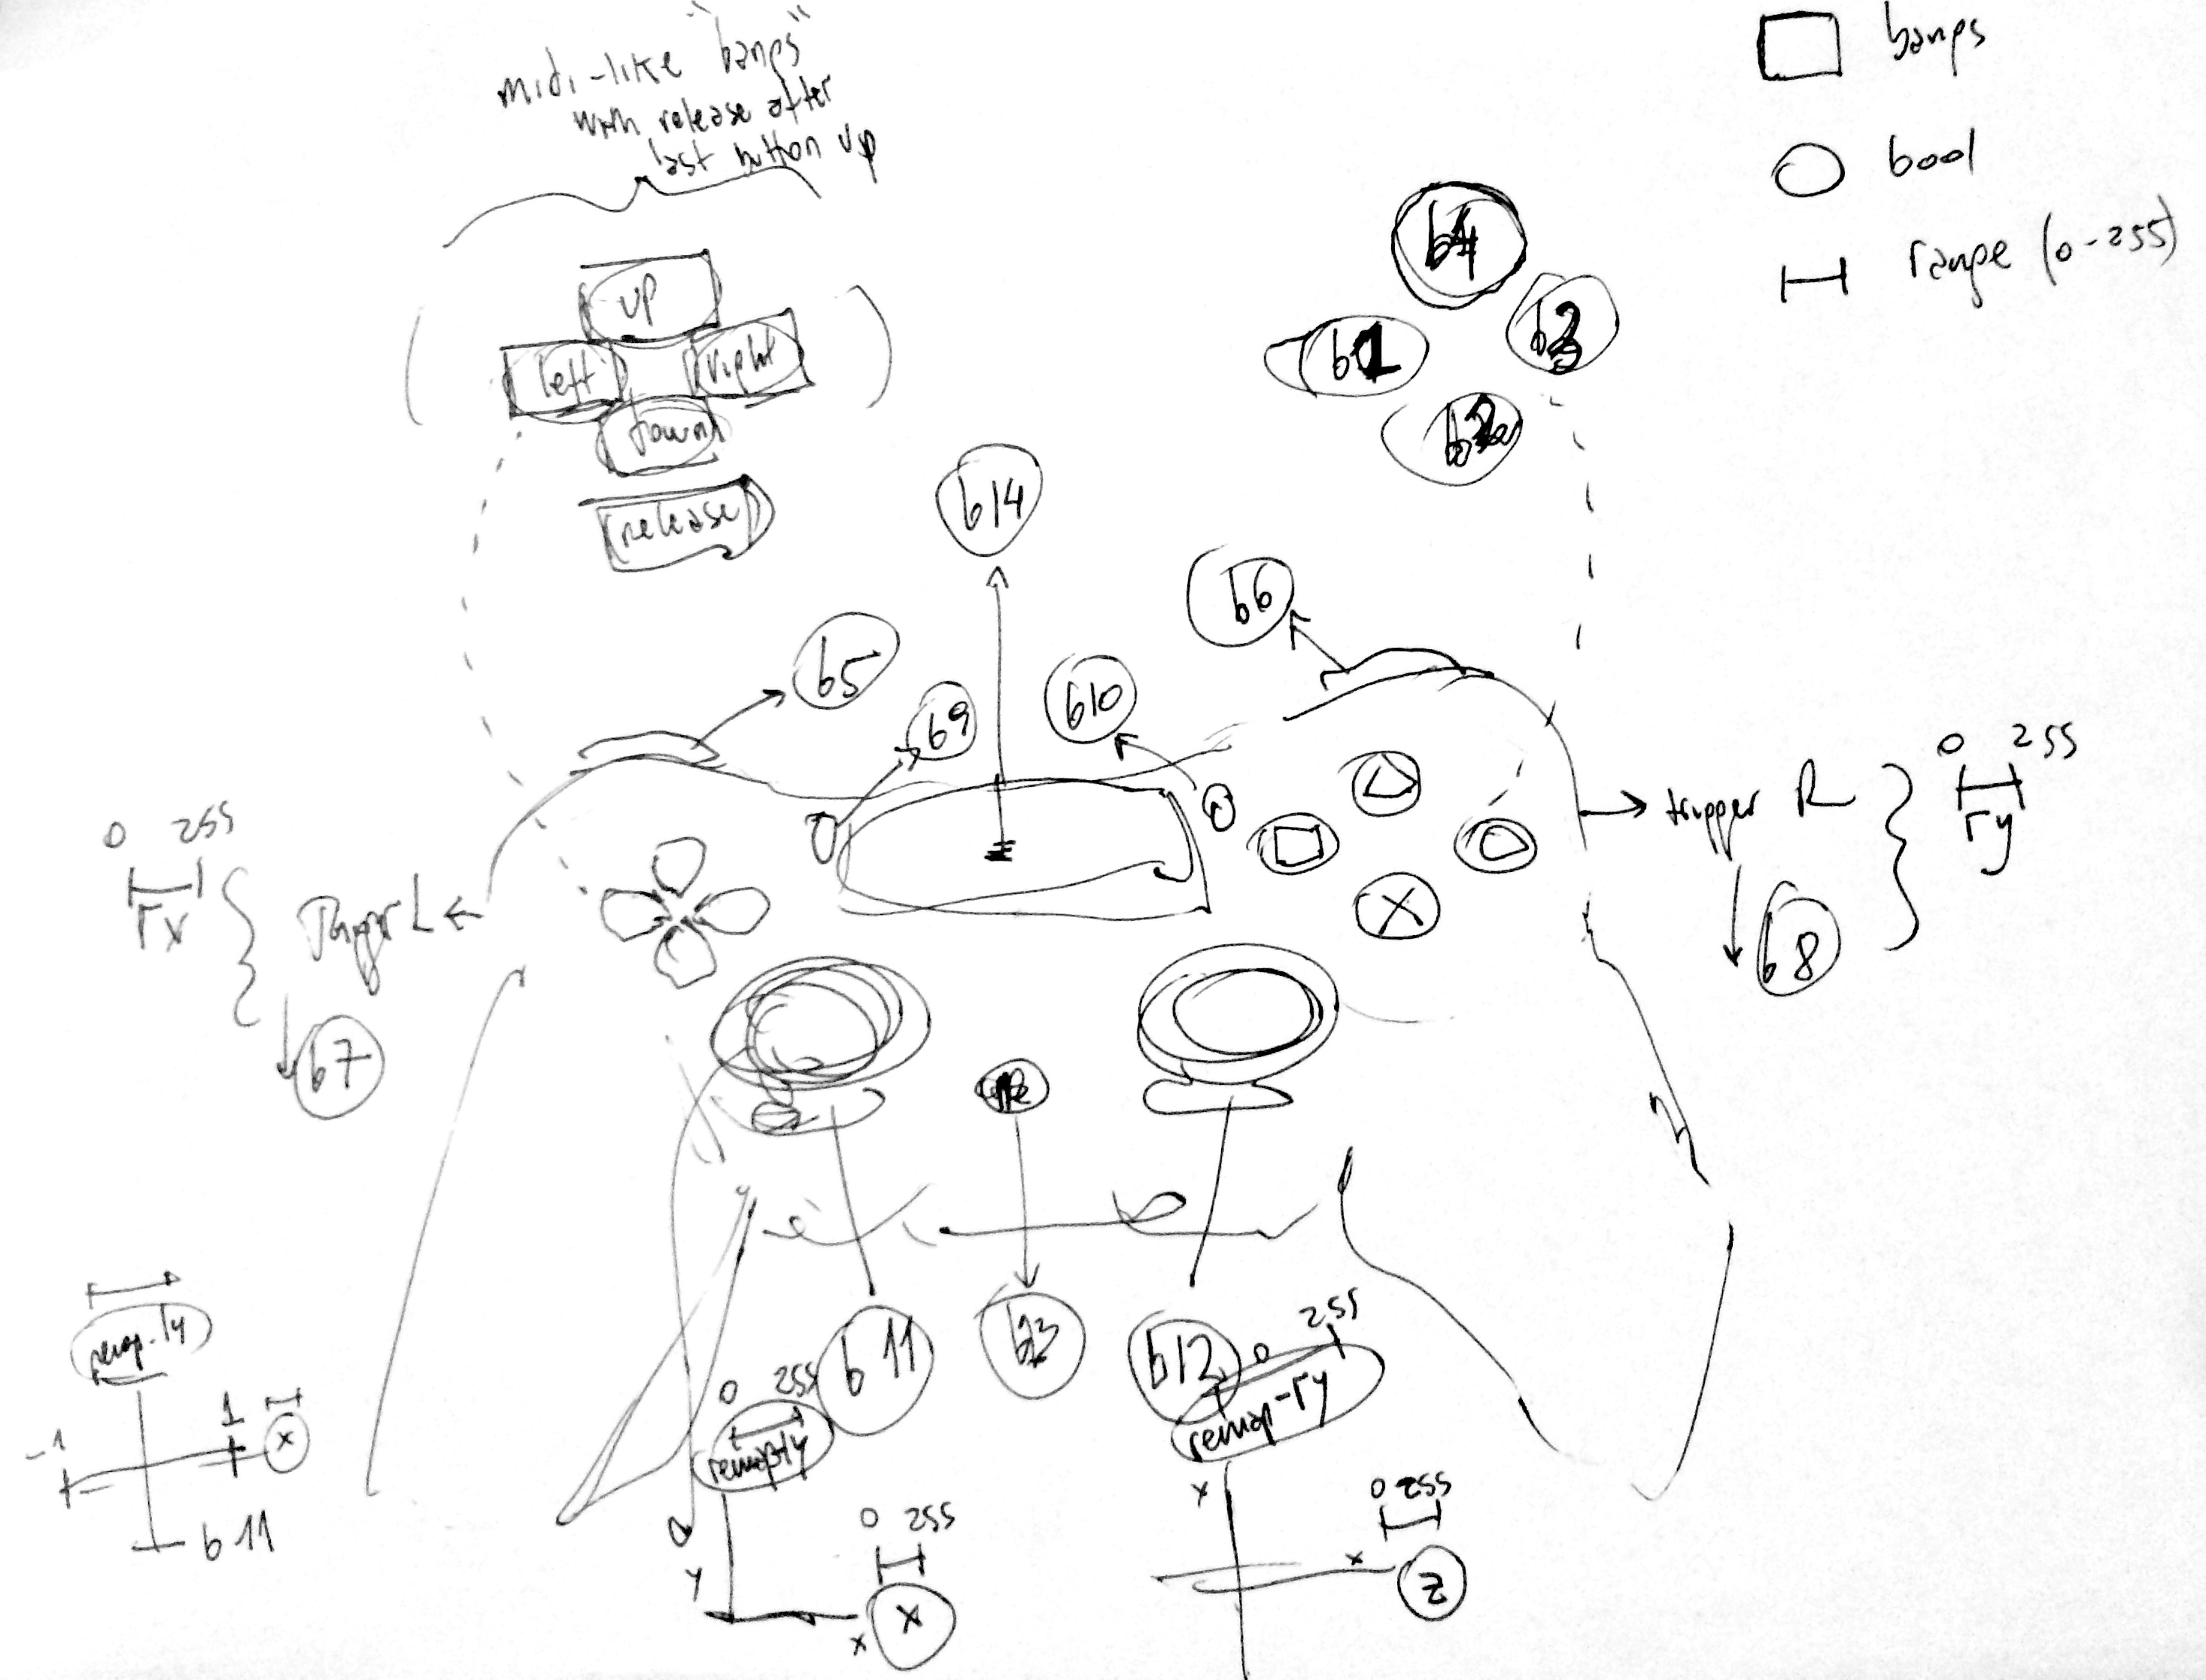 midi-like "bangs"
with release after
last button up
bangs
bool
range (0-255)
up
left
right
down
release
b4
b1
b3
b2
b14
b6
b5
b9
b10
0 255
rx
Trigger L
b7
trigger R
0 255
ry
b8
b11
b13
b12
0 255
remap-ry
0 255
remap-ly
remap-ly
-1
1
x
b11
y
x
0 255
x
x
x
0 255
z